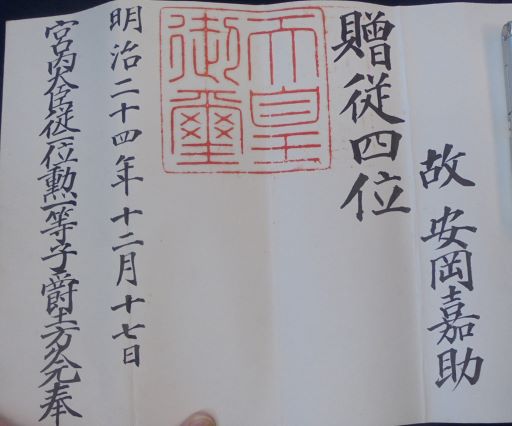 故 安岡嘉助
贈従四位
天皇
御璽
明治二十四年十二月十七日
宮内大臣従二位勲一等子爵土方久元奉